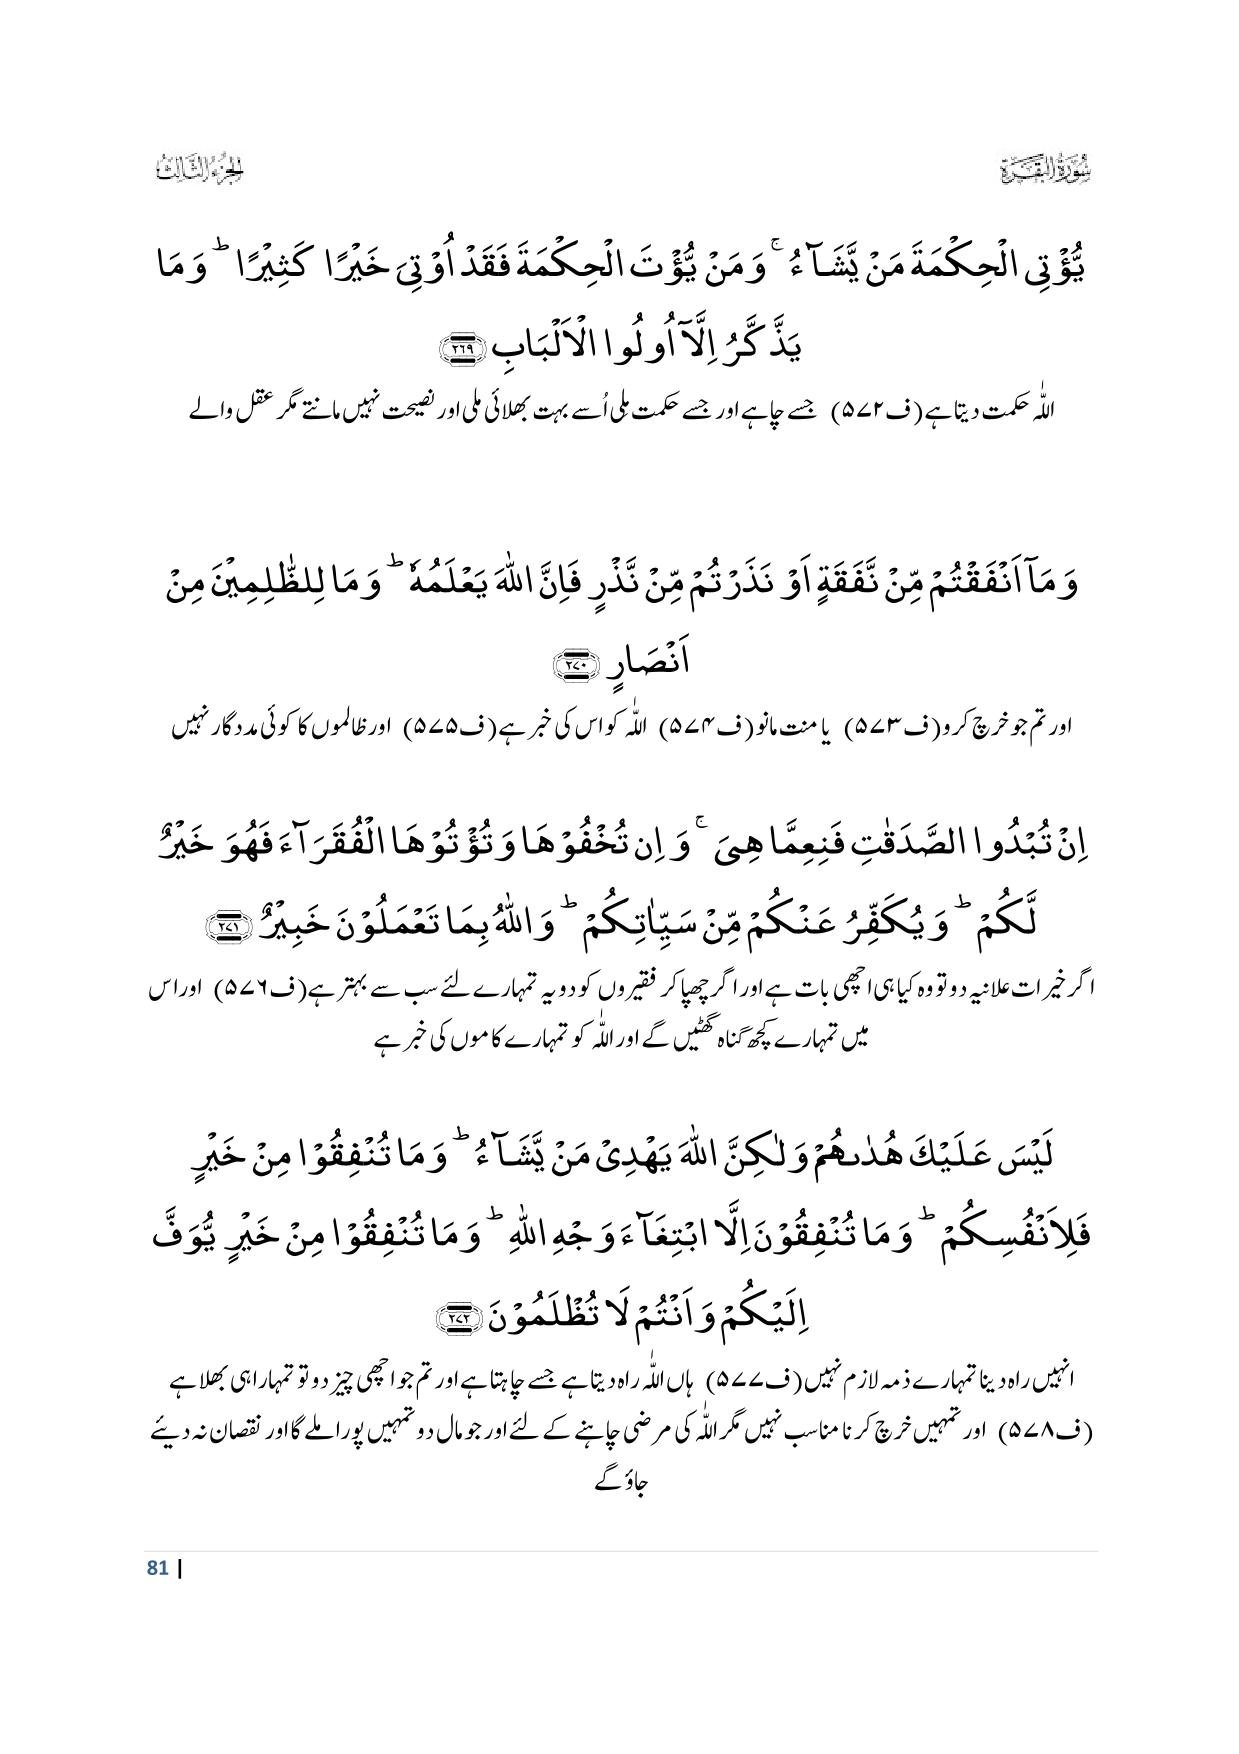 سُوْرَةُ الْبَقَرَة
الجزء الثالث
يُّؤْتِی الْحِكْمَةَ مَنْ یَّشَآءُ ۚ وَ مَنْ یُّؤْتَ الْحِكْمَةَ فَقَدْ اُوْتِیَ خَیْرًا كَثِیْرًا ؕ وَ مَا
یَذَّكَّرُ اِلَّاۤ اُولُوا الْاَلْبَابِ ﴿۲۶۹﴾
اللّٰہ حکمت دیتا ہے (ف۵۷۲) جسے چاہے اور جسے حکمت مِلی اُسے بہت بھلائی ملی اور نصیحت نہیں مانتے مگر عقل والے
وَ مَاۤ اَنْفَقْتُمْ مِّنْ نَّفَقَةٍ اَوْ نَذَرْتُمْ مِّنْ نَّذْرٍ فَاِنَّ اللّٰهَ یَعْلَمُهٗ ؕ وَ مَا لِلظّٰلِمِیْنَ مِنْ
اَنْصَارٍ ﴿۲۷۰﴾
اور تم جو خرچ کرو (ف۵۷۳) یا منت مانو (ف۵۷۴) اللّٰہ کو اس کی خبر ہے (ف۵۷۵) اور ظالموں کا کوئی مددگار نہیں
اِنْ تُبْدُوا الصَّدَقٰتِ فَنِعِمَّا هِیَ ۚ وَ اِن تُخْفُوْهَا وَ تُؤْتُوْهَا الْفُقَرَآءَ فَهُوَ خَیْرٌ
لَّكُمْ ؕ وَ یُكَفِّرُ عَنْكُمْ مِّنْ سَیِّاٰتِكُمْ ؕ وَ اللّٰهُ بِمَا تَعْمَلُوْنَ خَبِیْرٌ ﴿۲۷۱﴾
اگر خیرات علانیہ دو تو وہ کیا ہی اچھی بات ہے اور اگر چھپا کر فقیروں کو دو یہ تمہارے لئے سب سے بہتر ہے (ف۵۷۶) اور اس
میں تمہارے کچھ گناہ گھٹیں گے اور اللّٰہ کو تمہارے کاموں کی خبر ہے
لَیْسَ عَلَیْكَ هُدٰىهُمْ وَ لٰكِنَّ اللّٰهَ یَهْدِیْ مَنْ یَّشَآءُ ؕ وَ مَا تُنْفِقُوْا مِنْ خَیْرٍ
فَلِاَنْفُسِكُمْ ؕ وَ مَا تُنْفِقُوْنَ اِلَّا ابْتِغَآءَ وَجْهِ اللّٰهِ ؕ وَ مَا تُنْفِقُوْا مِنْ خَیْرٍ یُّوَفَّ
اِلَیْكُمْ وَ اَنْتُمْ لَا تُظْلَمُوْنَ ﴿۲۷۲﴾
انہیں راہ دینا تمہارے ذمہ لازم نہیں (ف۵۷۷) ہاں اللّٰہ راہ دیتا ہے جسے چاہتا ہے اور تم جو اچھی چیز دو تو تمہارا ہی بھلا ہے
(ف۵۷۸) اور تمہیں خرچ کرنا مناسب نہیں مگر اللّٰہ کی مرضی چاہنے کے لئے اور جو مال دو تمہیں پورا ملے گا اور نقصان نہ دیئے
جاؤ گے
81 |